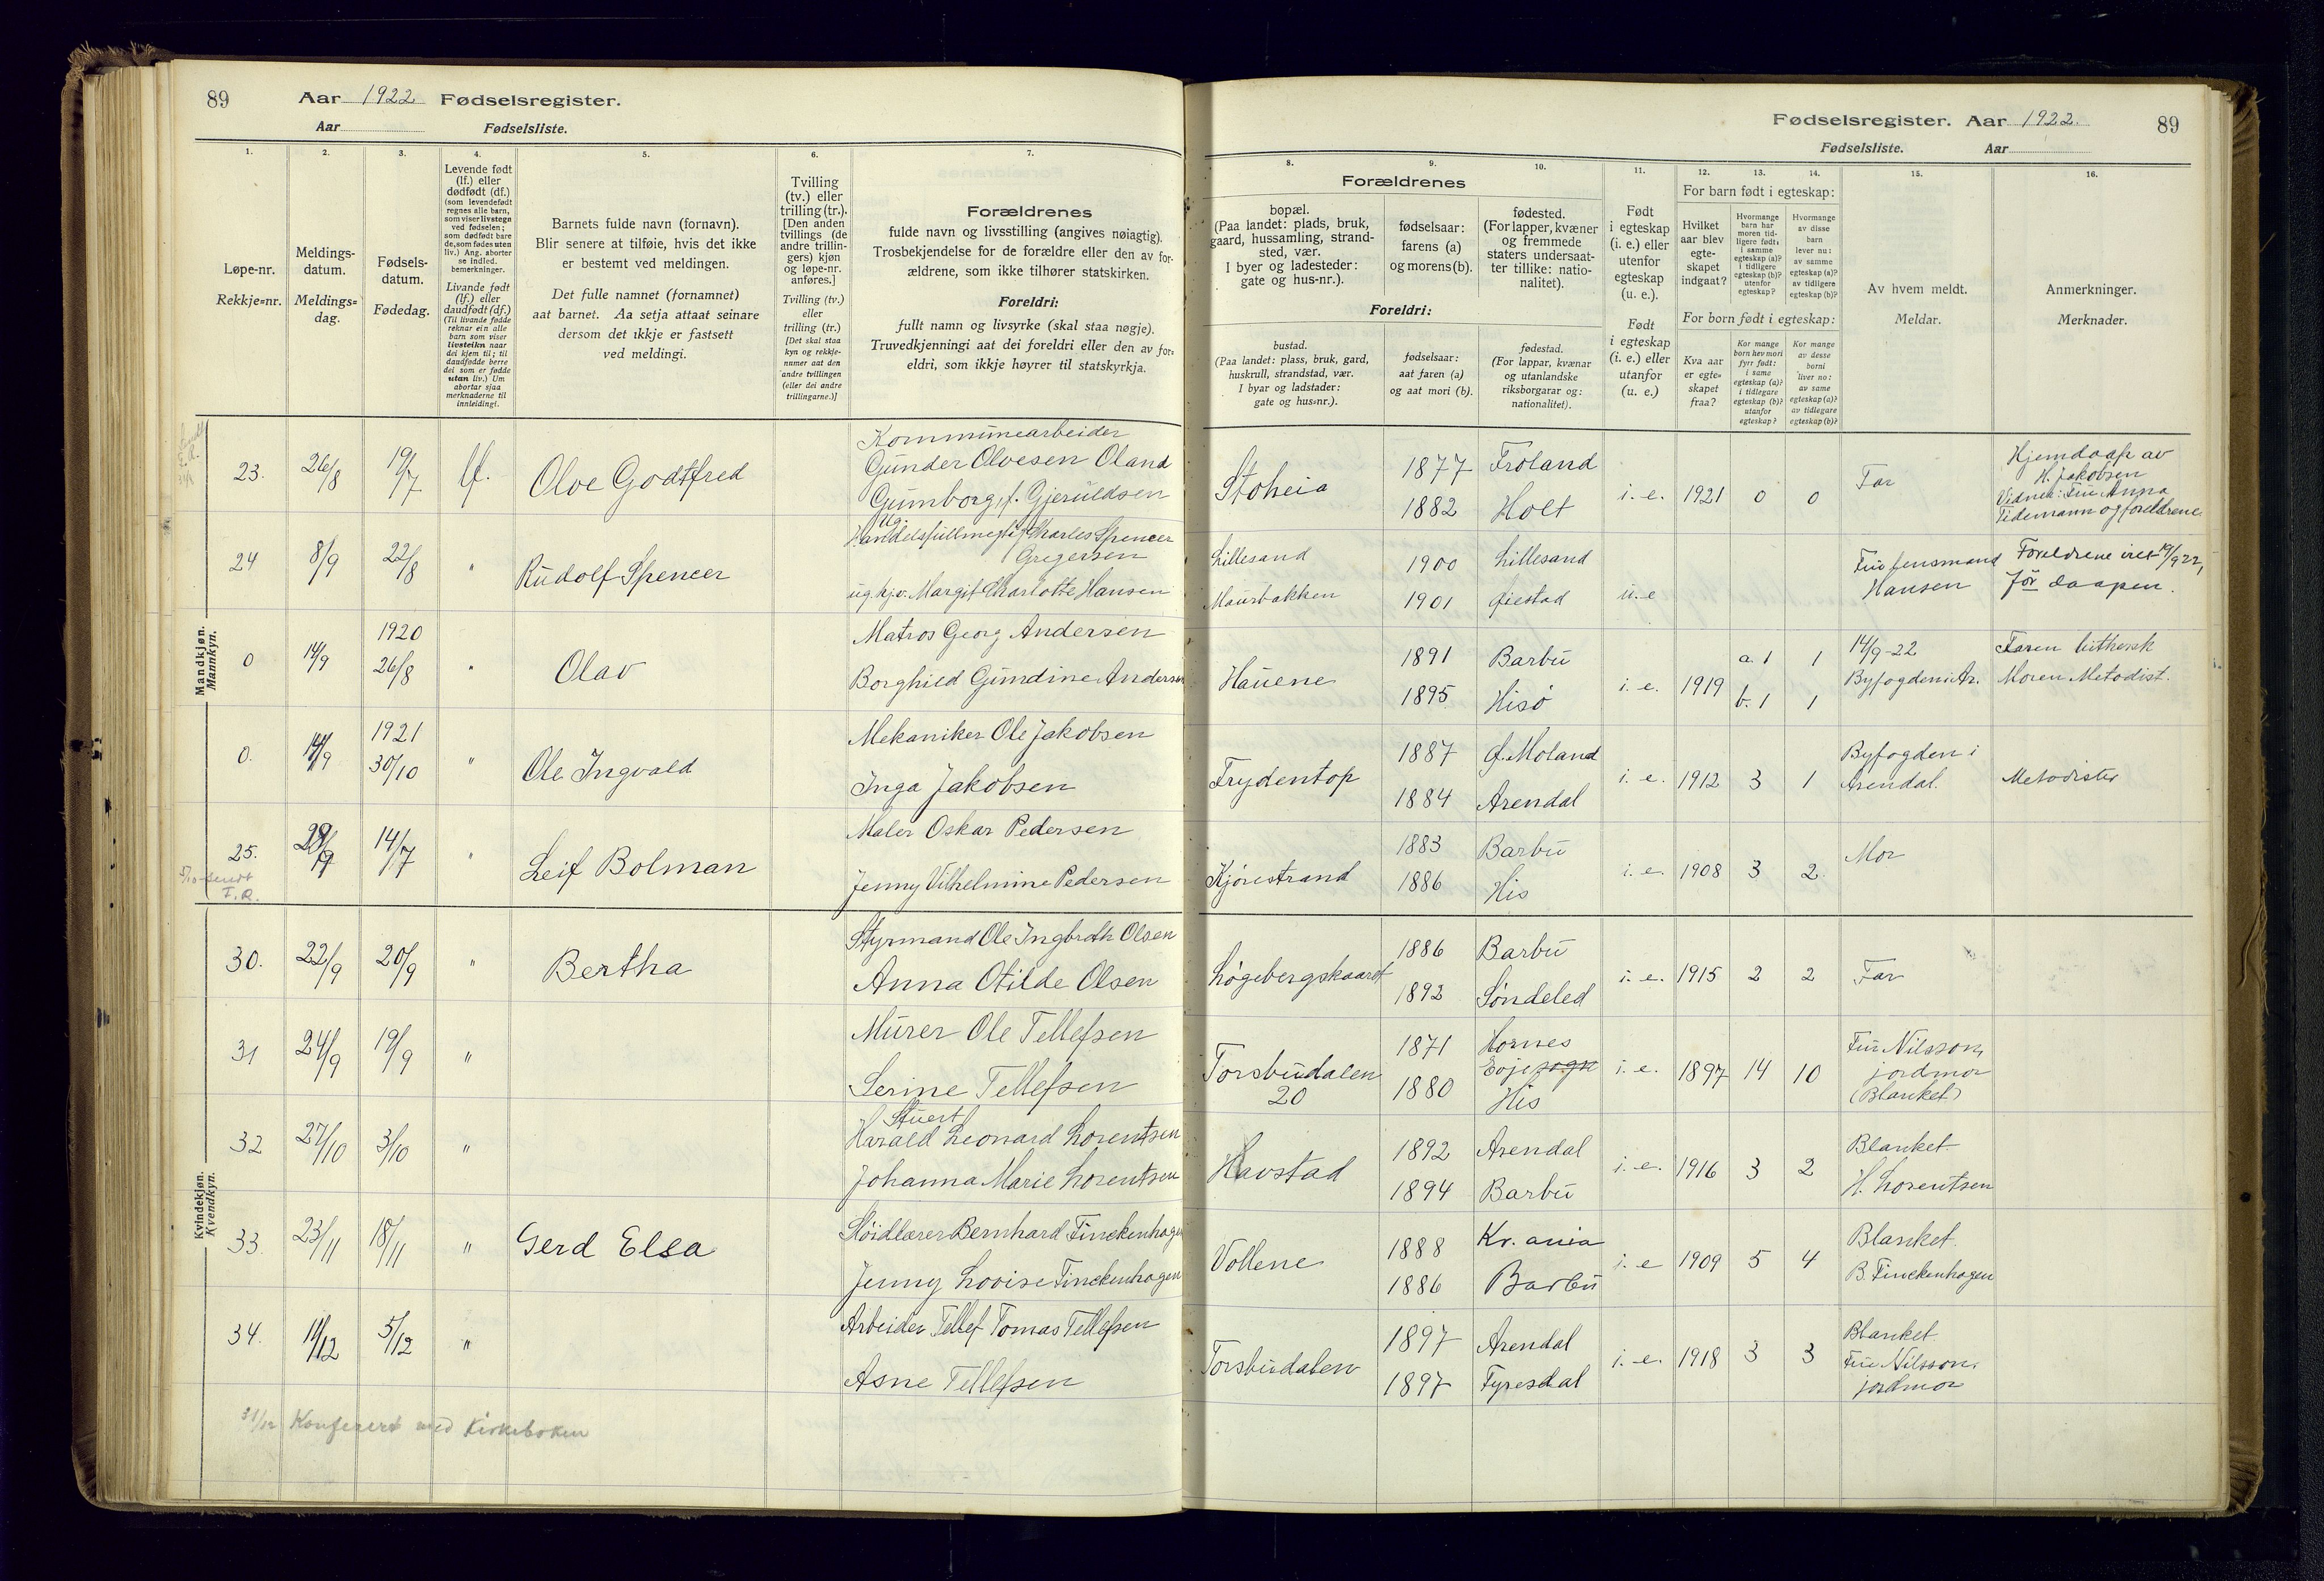 89
Aar 1922 Fødselsregister.
Aar
Fødselsliste.
1.
Løpe-nr.
Rekkje=nr.
2.
Meldings-
datum.
Meldings=
dag.
3.
Fødsels-
datum.
Fødedag.
4.
Levende født
(lf.) eller
dødfødt (df.)
(som levendefødt
regnes alle barn,
som viser livstegn
ved fødselen;
som dødfødt bare
de, som fødes uten
liv.) Ang. aborter
se indled.
bemerkninger.
Livande født
(lf.) eller
daudfødt (df.)
(Til livande fødde
reknar ein alle
barn som viser
livsteikn naar
dei kjem til; til
daudfødde berre
dei som er fødde
utan liv.) Um
abortar sjaa
merknaderne til
innleidingi.
5.
Barnets fulde navn (fornavn).
Blir senere at tilføie, hvis det ikke
er bestemt ved meldingen.
Det fulle namnet (fornamnet)
aat barnet. Aa setja attaat seinare
dersom det ikkje er fastsett
ved meldingi.
6.
Tvilling
(tv.) eller
trilling (tr.).
[Den anden
tvillings (de
andre trillin-
gers) kjøn
og løpe-nr.
anføres.]
Tvilling (tv.)
eller
trilling (tr.)
[Det skal staa
kyn og rekkje-
numer aat den
andre tvillingen
(eller dei andre
trillingarne.)]
7.
Forældrenes
fulde navn og livsstilling (angives nøiagtig).
Trosbekjendelse for de forældre eller den av for-
ældrene, som ikke tilhører statskirken.
Foreldri:
fullt namn og livsyrke (skal staa nøgje).
Truvedkjenningi aat dei foreldri eller den av for=
eldri, som ikkje høyrer til statskyrkja.
Mandkjøn.
Mannkyn.
23. 26/8 19/7 lf. Olve Godtfred
Kommunearbeider
Gunder Olvesen Oland
Gumborg, f. Gjeruldsen
24 8/9 22/8 " Rudolf Spencer
Ug.
Handelsfullmegtig Charles Spencer
Gregersen
ug. hj.v. Margit Charlotte Hansen
0 14/9 1920
26/8 " Olav
Matros Georg Andersen
Borghild Gundine Andersen
0. 14/9 1921
30/10 " Ole Ingvald
Mekaniker Ole Jakobsen
Inga Jakobsen
25. 14/7 " Leif Bolman
Maler Oskar Pedersen
Jenny Vilhelmine Pedersen
5/10 sendt
F.R.
Kvindekjøn.
Kvendkyn.
30. 22/9 20/9 " Bertha
Styrmand Ole Olsen
Anna Otilde Olsen
31 24/9 19/9 "
Murer Ole Tellefsen
Serine Tellefsen
32 27/10 3/10 "
Stuert
Harald Leonard Lorentsen
Johanna Marie Lorentsen
33. 23/11 18/11 " Gerd Elsa
Sløidlærer Bernhard Finckenhagen
Jenny Lovise Finckenhagen
34. 11/12 5/12 "
Arbeider Tellef Tomas Tellefsen
Asne Tellefsen
31/12 Konferert med Kirkeboken
Fødselsregister. Aar 1922.
89
Fødselsliste.
Aar
8.
Forældrenes
bopæl.
(Paa landet: plads, bruk,
gaard, hussamling, strand-
sted, vær.
I byer og ladesteder:
gate og hus-nr.).
Foreldri:
bustad.
(Paa landet: plass, bruk, gard,
huskrull, strandstad, vær.
I byar og ladstader:
gate og hus=nr.).
9.
fødselsaar:
farens (a)
og morens (b).
fødselsaar:
aat faren (a)
og aat mori (b).
10.
fødested.
(For lapper, kvæner
og fremmede
staters undersaat-
ter tillike: natio-
nalitet).
fødestad.
(For lappar, kvænar
og utanlandske
riksborgarar og:
nationalitet).
11.
Født
i egteskap
(i. e.) eller
utenfor
egteskap
(u. e.).
Født
i egteskap
(i. e.) eller
utanfor
(u. e.)
12. 13. 14.
For barn født i egteskap:
Hvilket
aar blev
egte-
skapet
indgaat?
Hvormange
barn har
moren tid-
ligere født:
i samme
egteskap (a)?
i tidligere
egteskap (b)?
utenfor
egteskap?
Hvormange
av disse
barn
lever nu:
av samme
egteskap (a)?
av tidligere
egteskap (b)?
For born født i egteskap:
Kva aar
er egte=
skapet
fraa?
Kor mange
born hev mori
fyrr født:
i same
egteskap (a)?
i tidlegare
egteskap (b)?
utanfor
egteskap?
Kor mange
av desse
borni
liver no:
av same
egteskap (a)?
av tidlegare
egteskap (b)?
15.
Av hvem meldt.
Meldar.
16.
Anmerkninger.
Merknader.
Stoheia
1877 Froland
1882 Holt
i. e. 1921 0 0 Far
Hjemdaap av
H. Jakobsen
Vidner: Fru Anna
Tidemann og foreldrene
Lillesand 1900 Lillesand
Maurbakken 1901 Øiestad u. e
Fru lensmand
Hansen
Foreldrene viet 19/9 22,
før daapen.
Hauene
1891 Barbu
1895 Hisø
i. e. 1919
a. 1 1
b. 1 1
14/9-22
Byfogden i Ar.
Faren luthersk
Moren Metodist.
Frydentop
1887 Ø. Moland
1884 Arendal
i. e. 1912 3 1
Byfogden i
Arendal.
Metodister
Kjørestrand
1883 Barbu
1886 His
i. e. 1908 3 2. Mor
Løgebergskaaret
1886 Barbu
1892 Søndeled
i. e. 1915 2 2 Far
Torsbudalen
20
1871 Hornes
Evje sogn
1880 His
i. e. 1897 14 10
Fru Nilsson,
jordmor
(Blanket)
Havstad
1892 Arendal
1894 Barbu
i. e. 1916 3 2
Blanket.
H. Lorentsen
Vollene
1888 Kr.ania
1886 Barbu
i. e 1909 5 4
Blanket.
B. Finckenhagen
Torsbudalen
1897 Arendal
1897 Fyresdal
i. e. 1918 3 3
Blanket.
Fru Nilsson,
jordmor